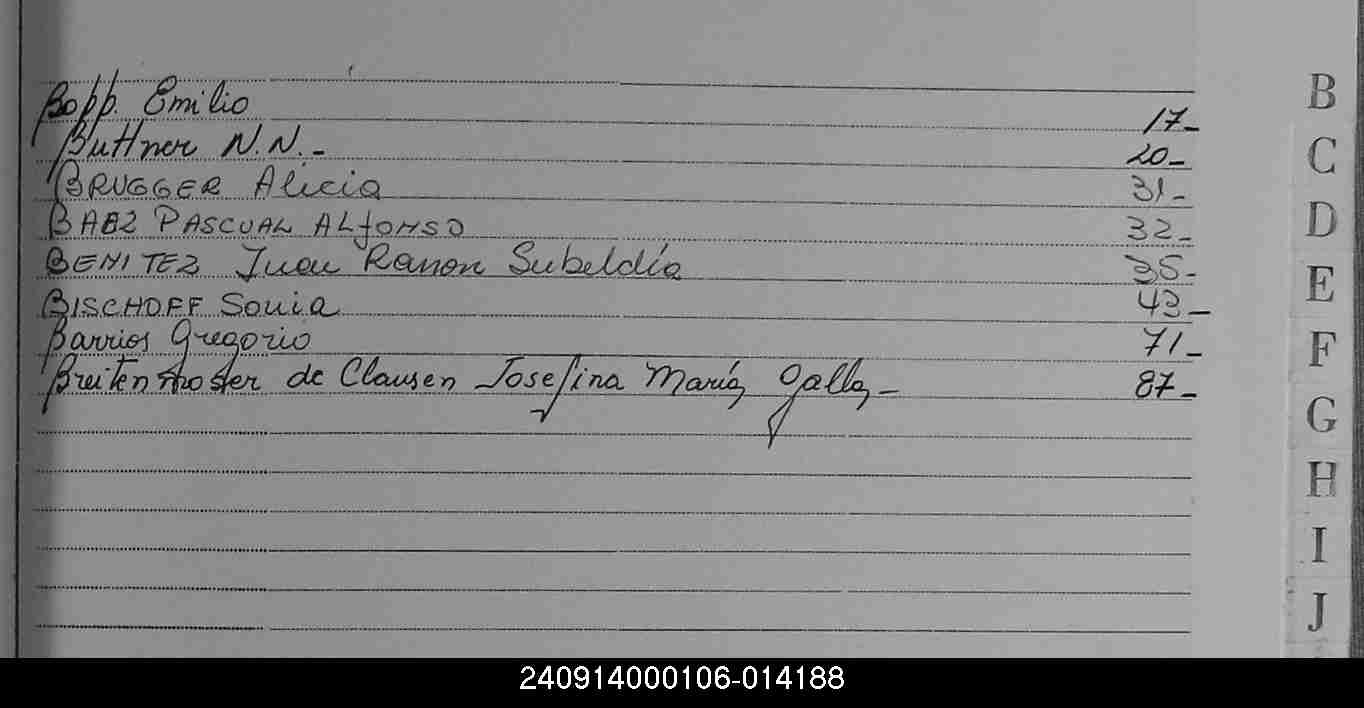 Bopp. Emilio 17-
Buttner N.N.- 20-
BRUGGER Alicia 31-
BAEZ PASCUAL ALfONSO 32-
BENITEZ Juan Ramon Subeldía 35-
BISCHOFF Sonia 43-
Barrios Gregorio 71-
Breitenmoser de Clausen Josefina María Galla- 87-
B
C
D
E
F
G
H
I
J
240914000106-014188